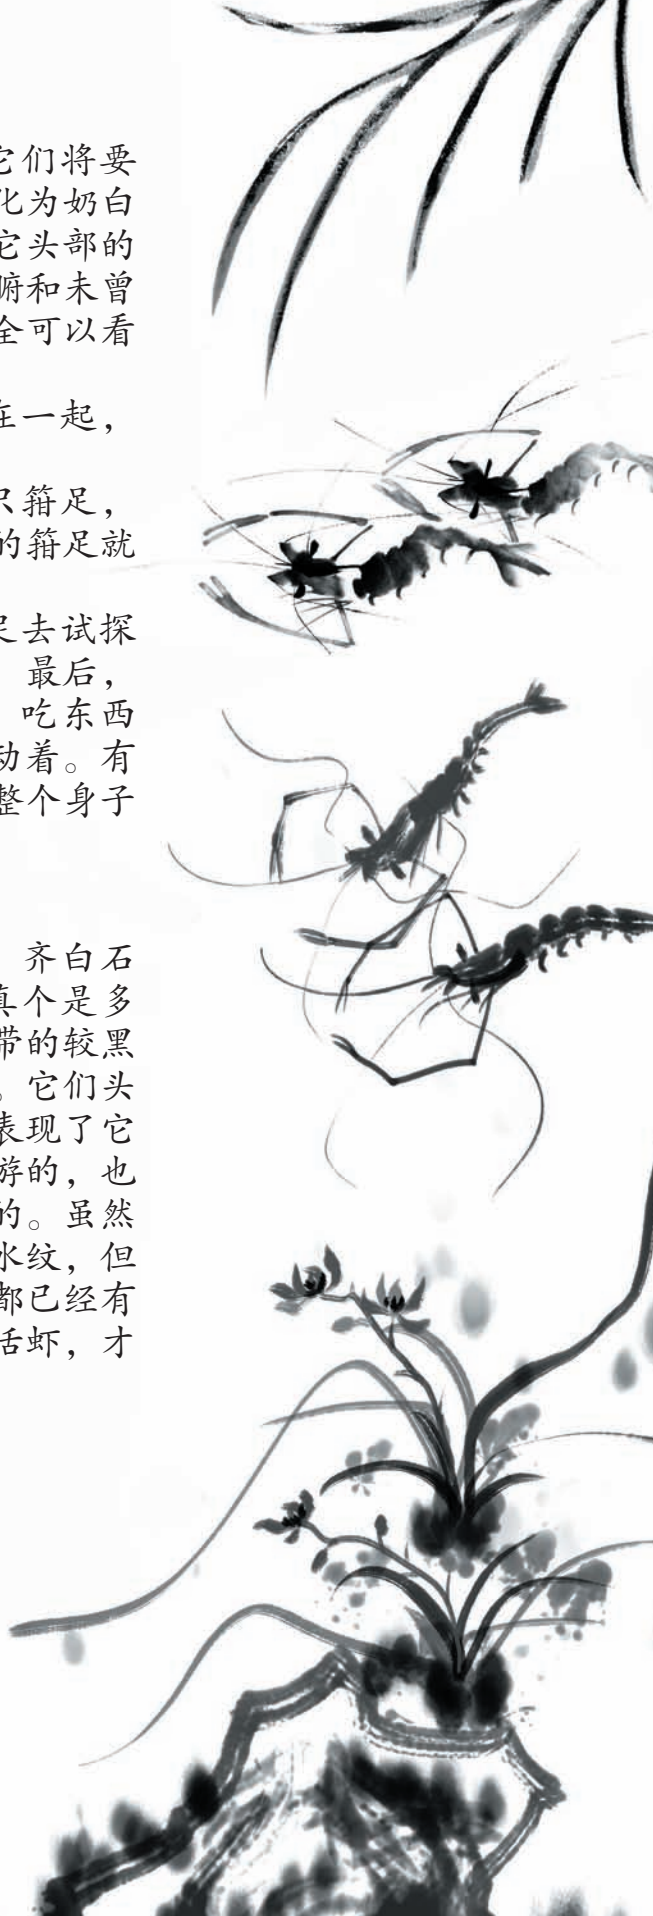 它们将要
化为奶白
它头部的
腑和未曾
全可以看
在一起，
只箝足，
的箝足就
足去试探
最后，
吃东西
动着。有
整个身子
齐白石
真个是多
带的较黑
。它们头
表现了它
游的，也
的。虽然
水纹，但
都已经有
活虾，才